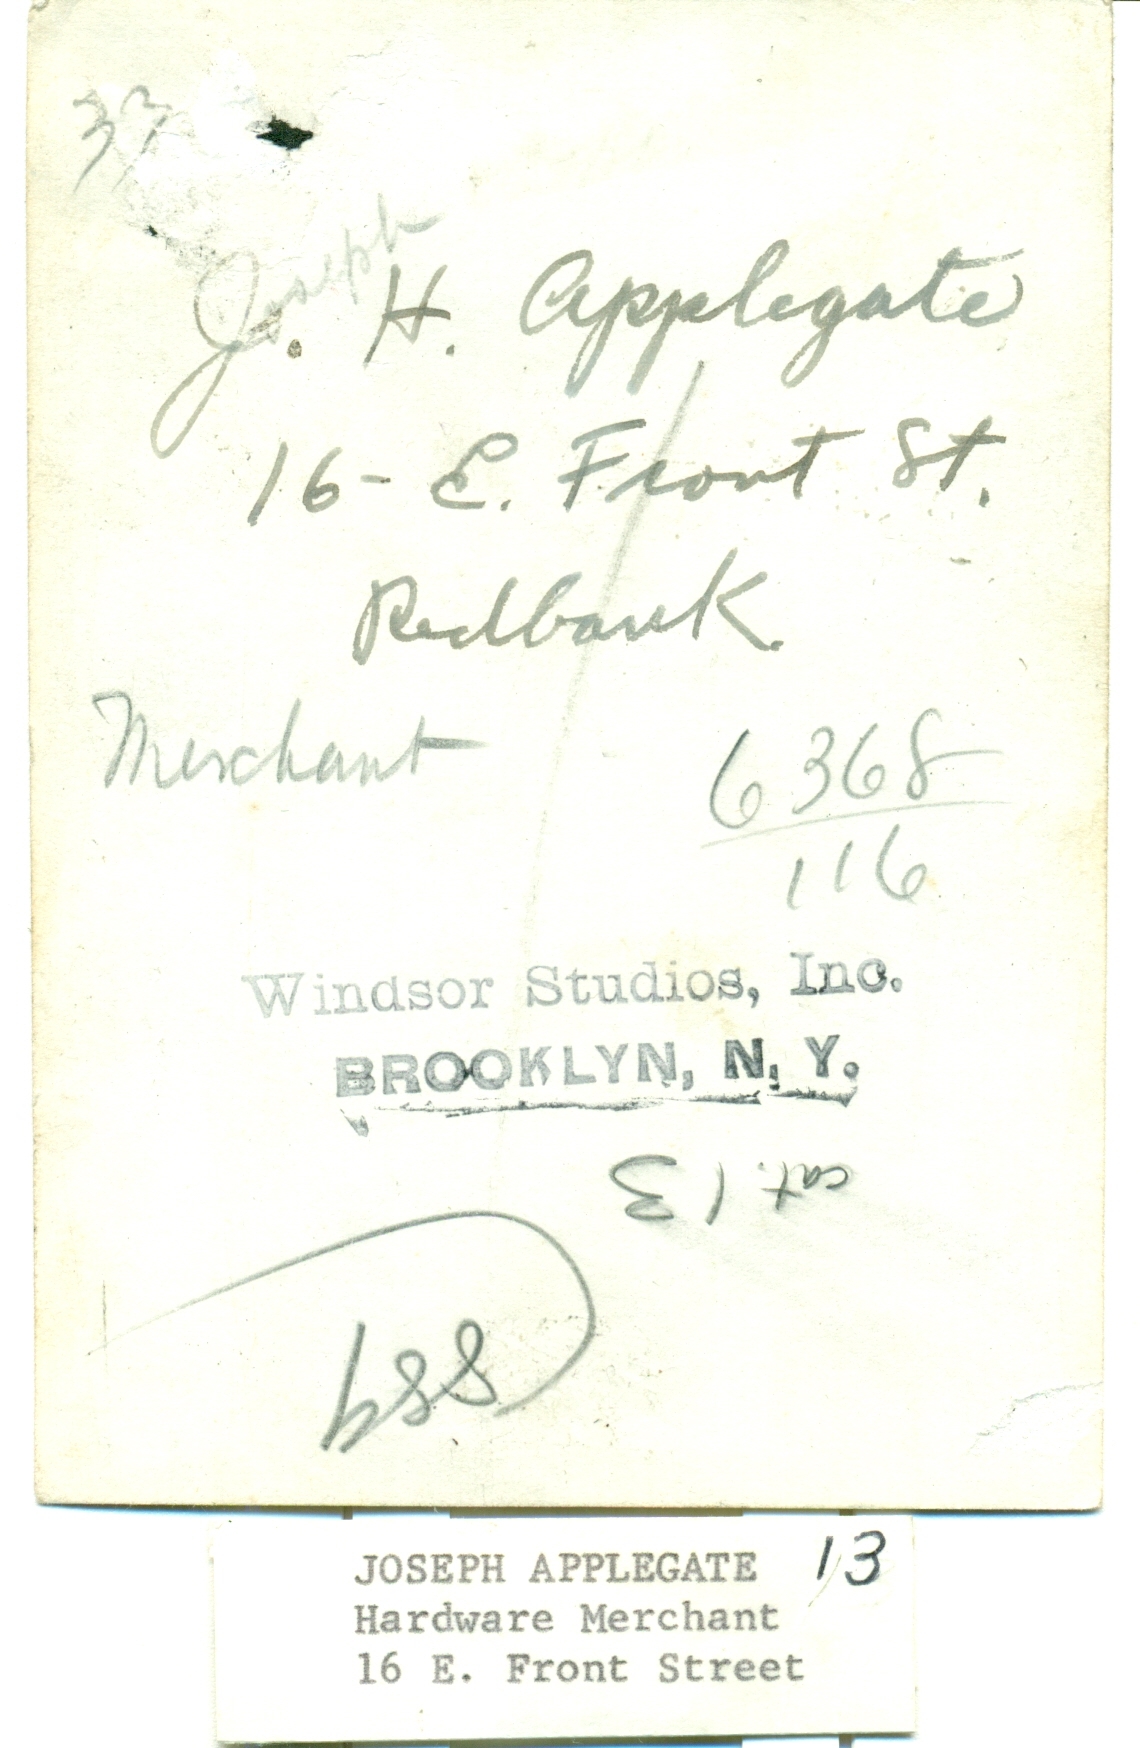 37
Joseph
J. H. Applegate
16- E. Front St.
Redbank.
Merchant
6368
116
Windsor Studios, Inc.
BROOKLYN, N. Y.
cat. 13
JOSEPH APPLEGATE 13
Hardware Merchant
16 E. Front Street